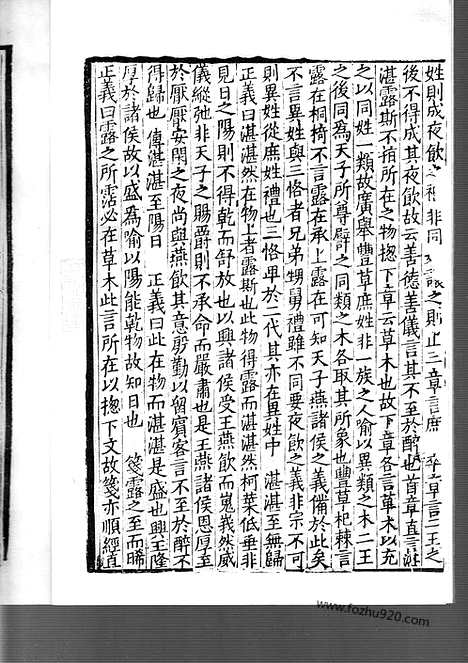 姓則成夜飲之禮非同姓讓之則止三章言庶姓卒章言二王之
後不得成其夜飲故云善德善儀言其不至於醉也首章直言湛
湛露斯不指所在之物揔下章云草木也故下章各言草木以充
之以同姓一類故廣舉豐草庶姓非一族之人喻以異類之木二王
之後同爲天子所尊辟之同類之木各取其所象也豐草杞棘言
露在桐椅不言露在承上露在可知天子燕諸侯之義備於此矣
不言異姓與三恪者兄弟甥舅禮雖不同要夜飲之義非宗不可
則異姓從庶姓禮也三恪卑於二代其亦在異姓中 湛湛至無歸
正義曰湛湛然在物上者露斯也此物得露而湛湛然柯葉低垂非
見日之陽則不得乾而舒放也以興諸侯受王燕飲而嵬峩然威
儀縱弛非天子之賜爵則不承命而嚴肅也是王燕諸侯恩厚至
於厭厭安閑之夜尚與燕飲其意殷勤以留賓客言不至於醉不
得歸也 傳湛湛至陽日 正義曰此在物而湛湛是盛也興王隆
厚於諸侯故以盛爲喻以陽能乾物故知日也 箋露之至而晞
正義曰露之所霑必在草木此言所在以揔下文故箋亦順經直
www.fozhu920.com